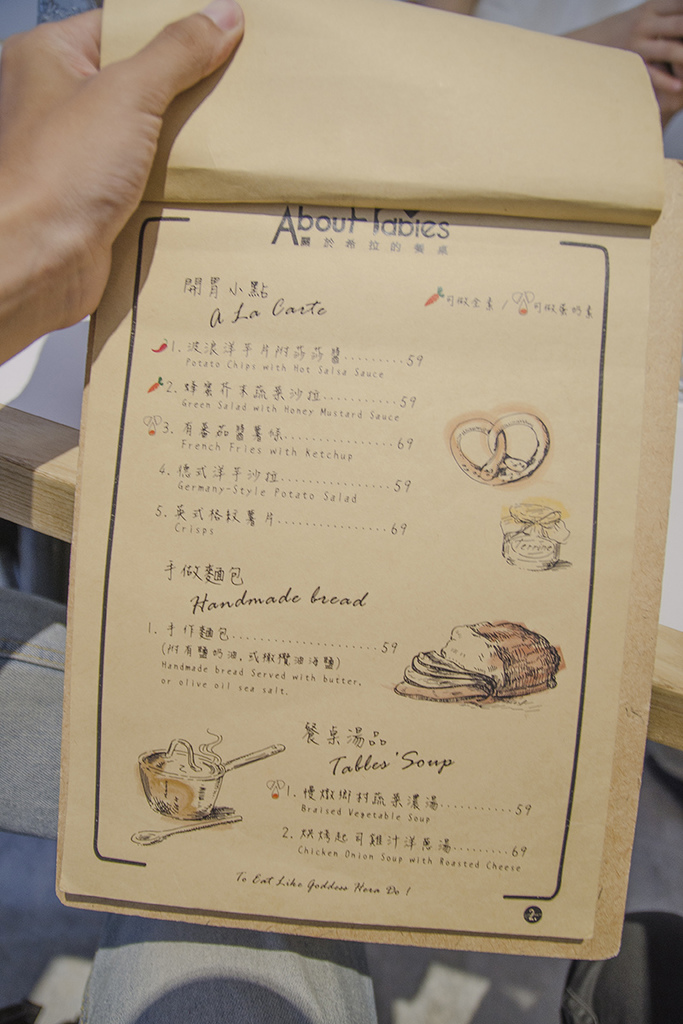 About Tables
關於希拉的餐桌
開胃小點
A La Carte
可做全素 / 可做蛋奶素
1. 波浪洋芋片附莎莎醬.........59
Potato Chips with Hot Salsa Sauce
2. 蜂蜜芥末蔬菜沙拉..........59
Green Salad with Honey Mustard Sauce
3. 有番茄醬薯條..............69
French Fries with Ketchup
4. 德式洋芋沙拉..............59
Germany-Style Potato Salad
5. 英式格紋薯片..............69
Crisps
手做麵包
Handmade bread
1. 手作麵包..................59
(附有鹽奶油,或橄欖油海鹽)
Handmade bread Served with butter,
or olive oil sea salt.
Terrine
餐桌湯品
Tables' Soup
1. 慢燉鄉村蔬菜濃湯..........59
Braised Vegetable Soup
2. 烘烤起司雞汁洋蔥湯........69
Chicken Onion Soup with Roasted Cheese
To Eat Like Goddess Hera Do !
2.